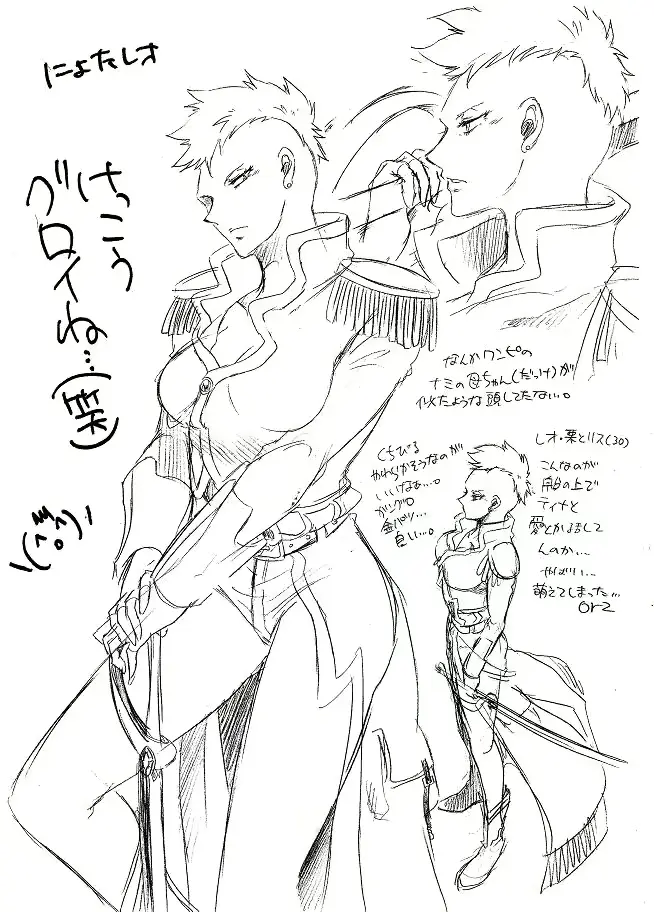 にょたレオ
けっこう
グロイね…(笑)
なんかワンピの
ナミの母ちゃん(だっけ)が
似たような頭してたな…。
くちびる
やわらかそうなのが
いいけなぁ…。
金パツ…
レオ・栗とリス(30)
こんなのが
船の上で
ティナと
愛とかを話して
んのか…
やばい…
萌えてしまった…
orz